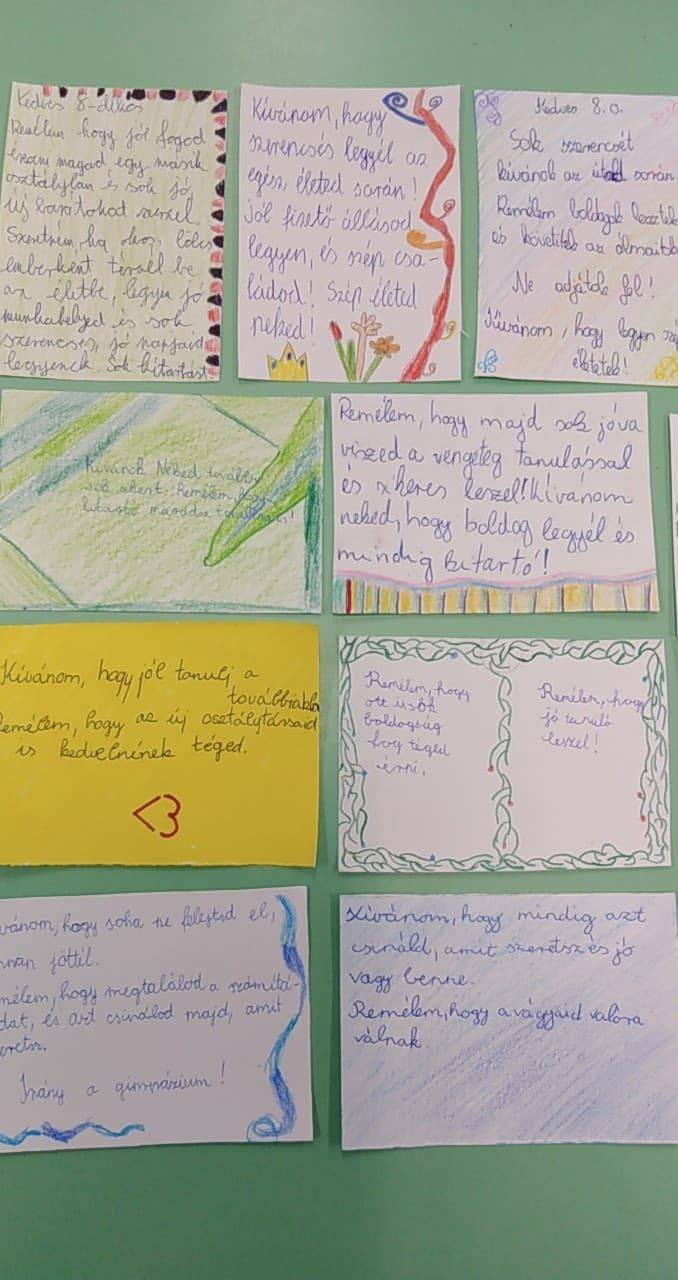 Kedves 8-dikos
hogy jól fogod
érezni magad egy másik
osztályban és sok jó,
új barátokat szerzel.
Szeretném, ha okos, bölcs
emberként térnél be
az életbe, legyen jó
munkahelyed és sok
szerencsés, jó napjaid
legyenek. Sok kitartást.
Kívánom, hogy
szerencsés legyél az
egész életed során!
Jól fizető állásod
legyen, és szép csa-
ládod! Szép életed
neked!
Kedves 8.o.
Sok szerencsét
kívánok az útad során
Remélem boldogok lesztek
és követitek az álmaitok
Ne adjátok fel!
Kívánom, hogy legyen szép
életetek!
Kívánok Neked további
sok sikert. Remélem, hogy
kitartó maradsz továbbra is!
Remélem, hogy majd sok jóva
viszed a vengeteg tanulással
és s̽ikeres leszel! Kívánom
neked, hogy boldog legyél és
mindig kitartó!
Kívánom, hogy jól tanulj a
továbbiakba
Remélem, hogy az új osztálytársaid
is kedvelnének téged.
<3
Remélem, hogy
ott is sok
boldogság
fog téged
érni.
Remélem, hogy
jó tanuló
leszel!
vánom, hogy soha ne felejtsd el,
nnan jöttél.
mélem, hogy megtalálod a számítá-
dat, és azt csinálod majd, amit
eretsz.
Irány a gimnázium!
Kívánom, hogy mindig azt
csináld, amit szeretsz és jó
vagy benne.
Remélem, hogy a vágyaid valóra
válnak.